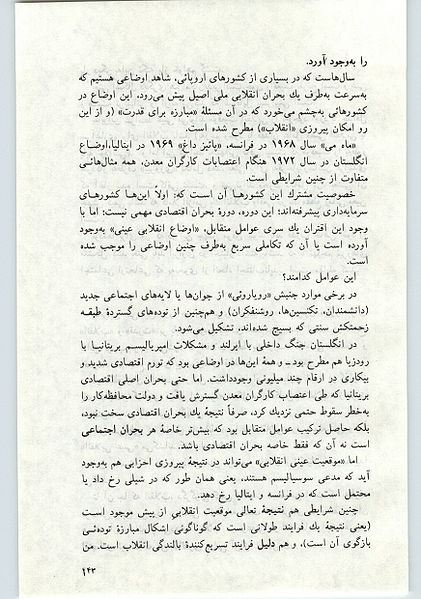 را به‌وجود آورد.
سال‌هاست که در بسیاری از کشورهای اروپائی، شاهد اوضاعی هستیم که
به‌سرعت به‌طرف یك بحران انقلابی ملی اصیل پیش می‌رود، این اوضاع در
کشورهائی به‌چشم می‌خورد که در آن مسئلهٔ «مبارزه برای قدرت» (و از این
رو امکان پیروزی «انقلاب») مطرح شده است.
«ماه می» سال ۱۹۶۸ در فرانسه، «پائیز داغ» ۱۹۶۹ در ایتالیا، اوضاع
انگلستان در سال ۱۹۷۲ هنگام اعتصابات کارگران معدن، همه مثال‌هائی
متفاوت از چنین شرایطی است.
خصوصیت مشترك این کشورها آن است که: اولاً این‌ها کشورهای
سرمایه‌داری پیشرفته‌اند؛ این دوره، دورهٔ بحران اقتصادی مهمی نیست؛ اما با
وجود این اقتران یك سری عوامل متقابل، «اوضاع انقلابی عینی» به‌وجود
آورده است یا آن که تکاملی سریع به‌طرف چنین اوضاعی را موجب شده
است.
این عوامل کدامند؟
در برخی موارد جنبش «رویاروئی» از جوان‌ها یا لایه‌های اجتماعی جدید
(دانشمندان، تکنسین‌ها، روشنفکران) و هم‌چنین از توده‌های گستردهٔ طبقه
زحمتکش سنتی که بسیج شده‌اند، تشکیل می‌شود.
در انگلستان جنگ داخلی با ایرلند و مشکلات امپریالیسم بریتانیا با
رودزیا هم مطرح بود ـ و همهٔ این‌ها در اوضاعی بود که تورم اقتصادی شدید و
بیکاری در ارقام چند میلیونی وجود داشت. اما حتی بحران اصلی اقتصادی
بریتانیا که طی اعتصاب کارگران معدن گسترش یافت و دولت محافظه‌کار را
به‌خطر سقوط حتمی نزدیك کرد، صرفاً نتیجهٔ یك بحران اقتصادی سخت نبود،
بلکه حاصل ترکیب عوامل متقابل بود که بیش‌تر خاصهٔ هر بحران اجتماعی
است نه آن که فقط خاصه بحران اقتصادی باشد.
اما «موقعیت عینی انقلابی» می‌تواند در نتیجهٔ پیروزی احزابی هم به‌وجود
آید که مدعی سوسیالیسم هستند، یعنی همان طور که در شیلی رخ داد یا
محتمل است که در فرانسه و ایتالیا رخ دهد.
چنین شرایطی هم نتیجهٔ تعالی موقعیت انقلابی از پیش موجود است
(یعنی نتیجهٔ یك فرایند طولانی است که گوناگونی اشکال مبارزهٔ توده‌ئی
بازگوی آن است)، و هم دلیل فرایند تسریع‌کنندهٔ بالندگی انقلاب است. من
۱۴۳